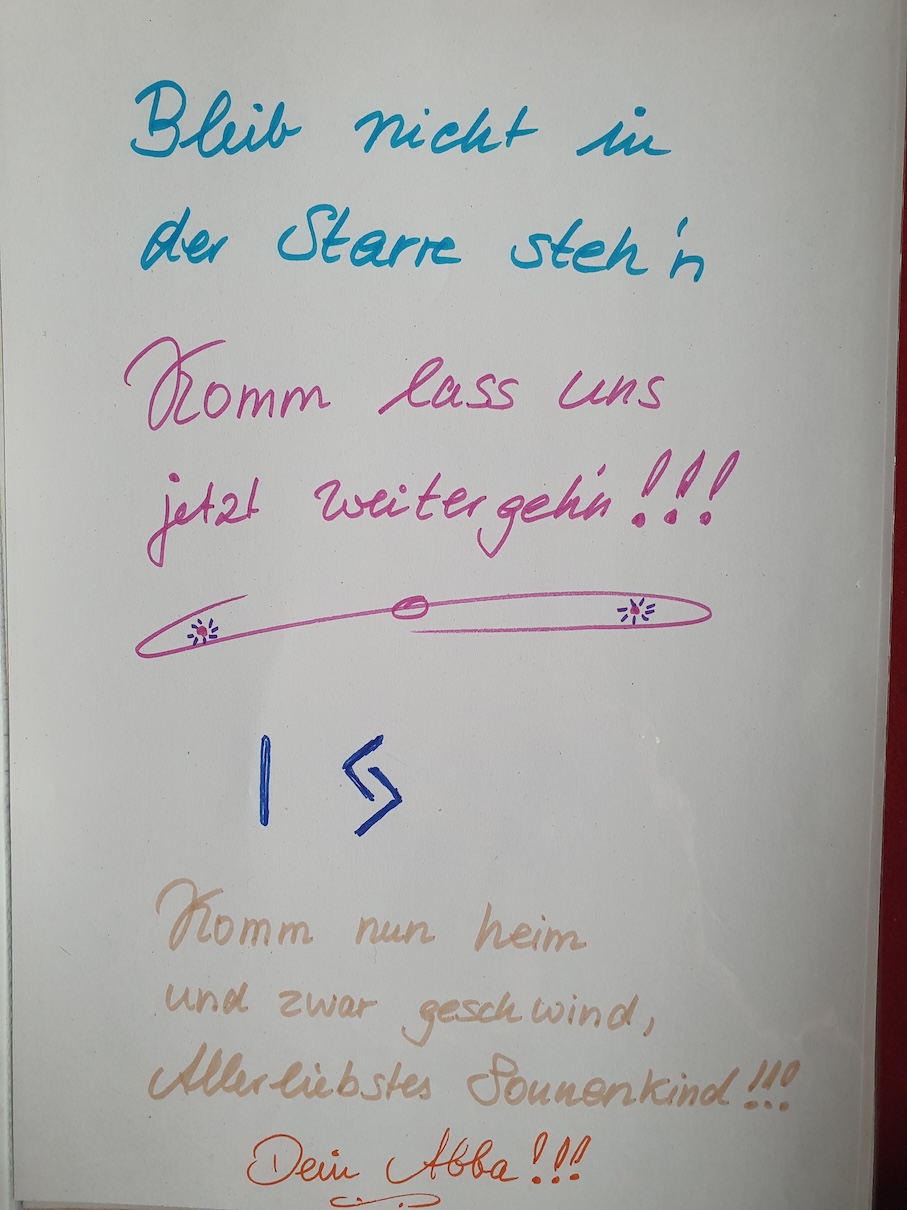 Bleib nicht in
der Starre steh'n
Komm lass uns
jetzt weitergeh'n!!!
ᛁ ᛃ
Komm nun heim
und zwar geschwind,
Allerliebstes Sonnenkind!!!
Dein Abba!!!